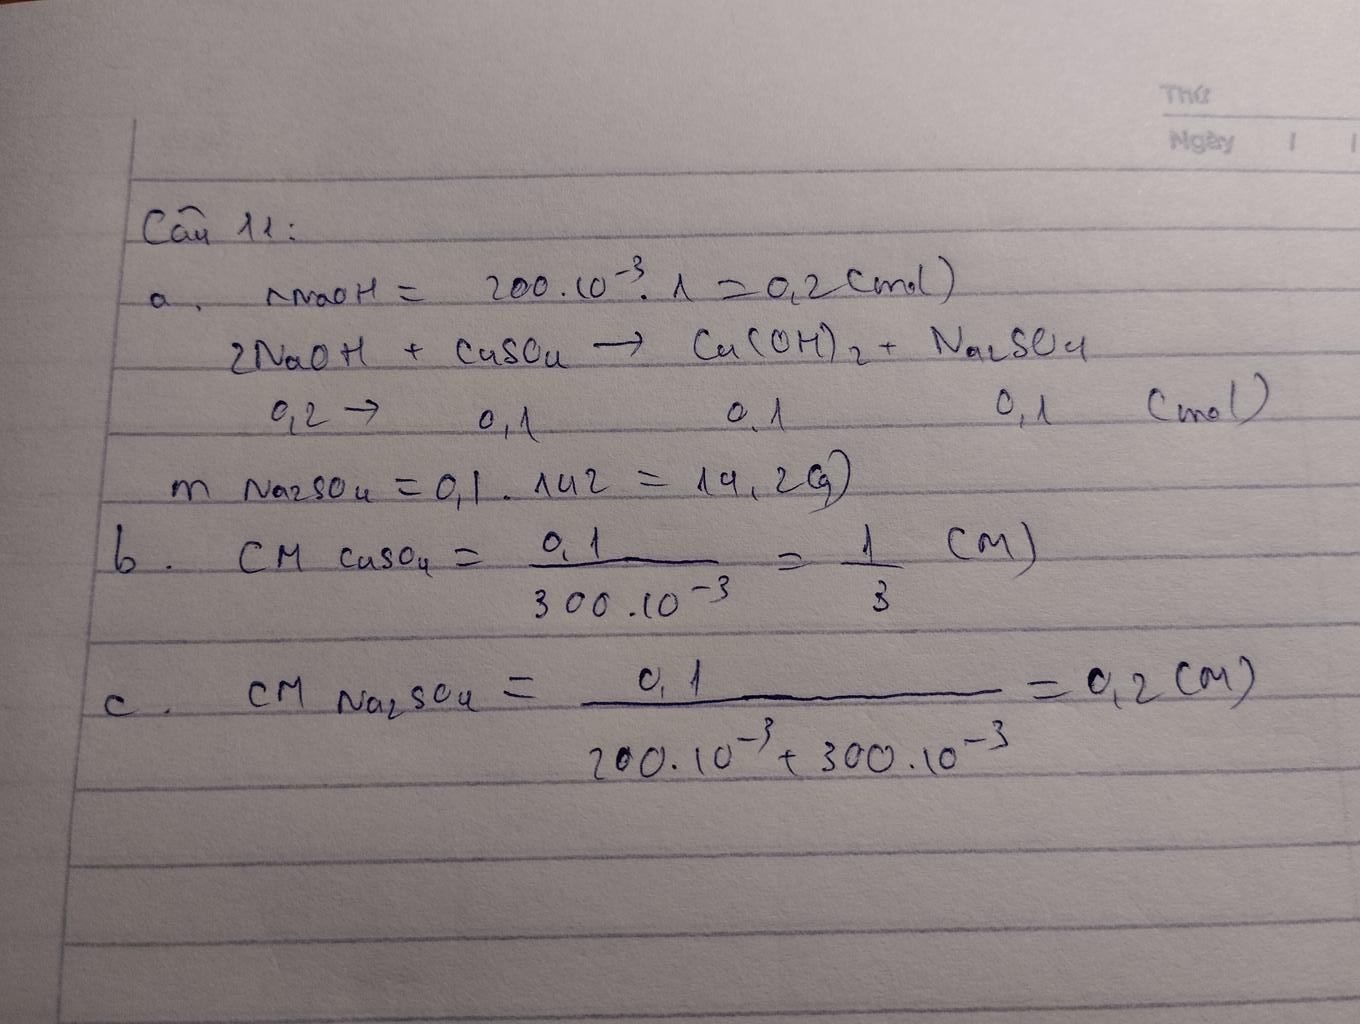 Thứ
Ngày / /
Câu 11:
a. nNaOH = 200.10⁻³. 1 = 0,2 (mol)
2NaOH + CuSO4 → Cu(OH)2 + Na2SO4
0,2 → 0,1 0,1 0,1 (mol)
m Na2SO4 = 0,1 . 142 = 14,2 (g)
b. CM CuSO4 = 0,1 / 300.10⁻³ = 1/3 (M)
c. CM Na2SO4 = 0,1 / 200.10⁻³ + 300.10⁻³ = 0,2 (M)